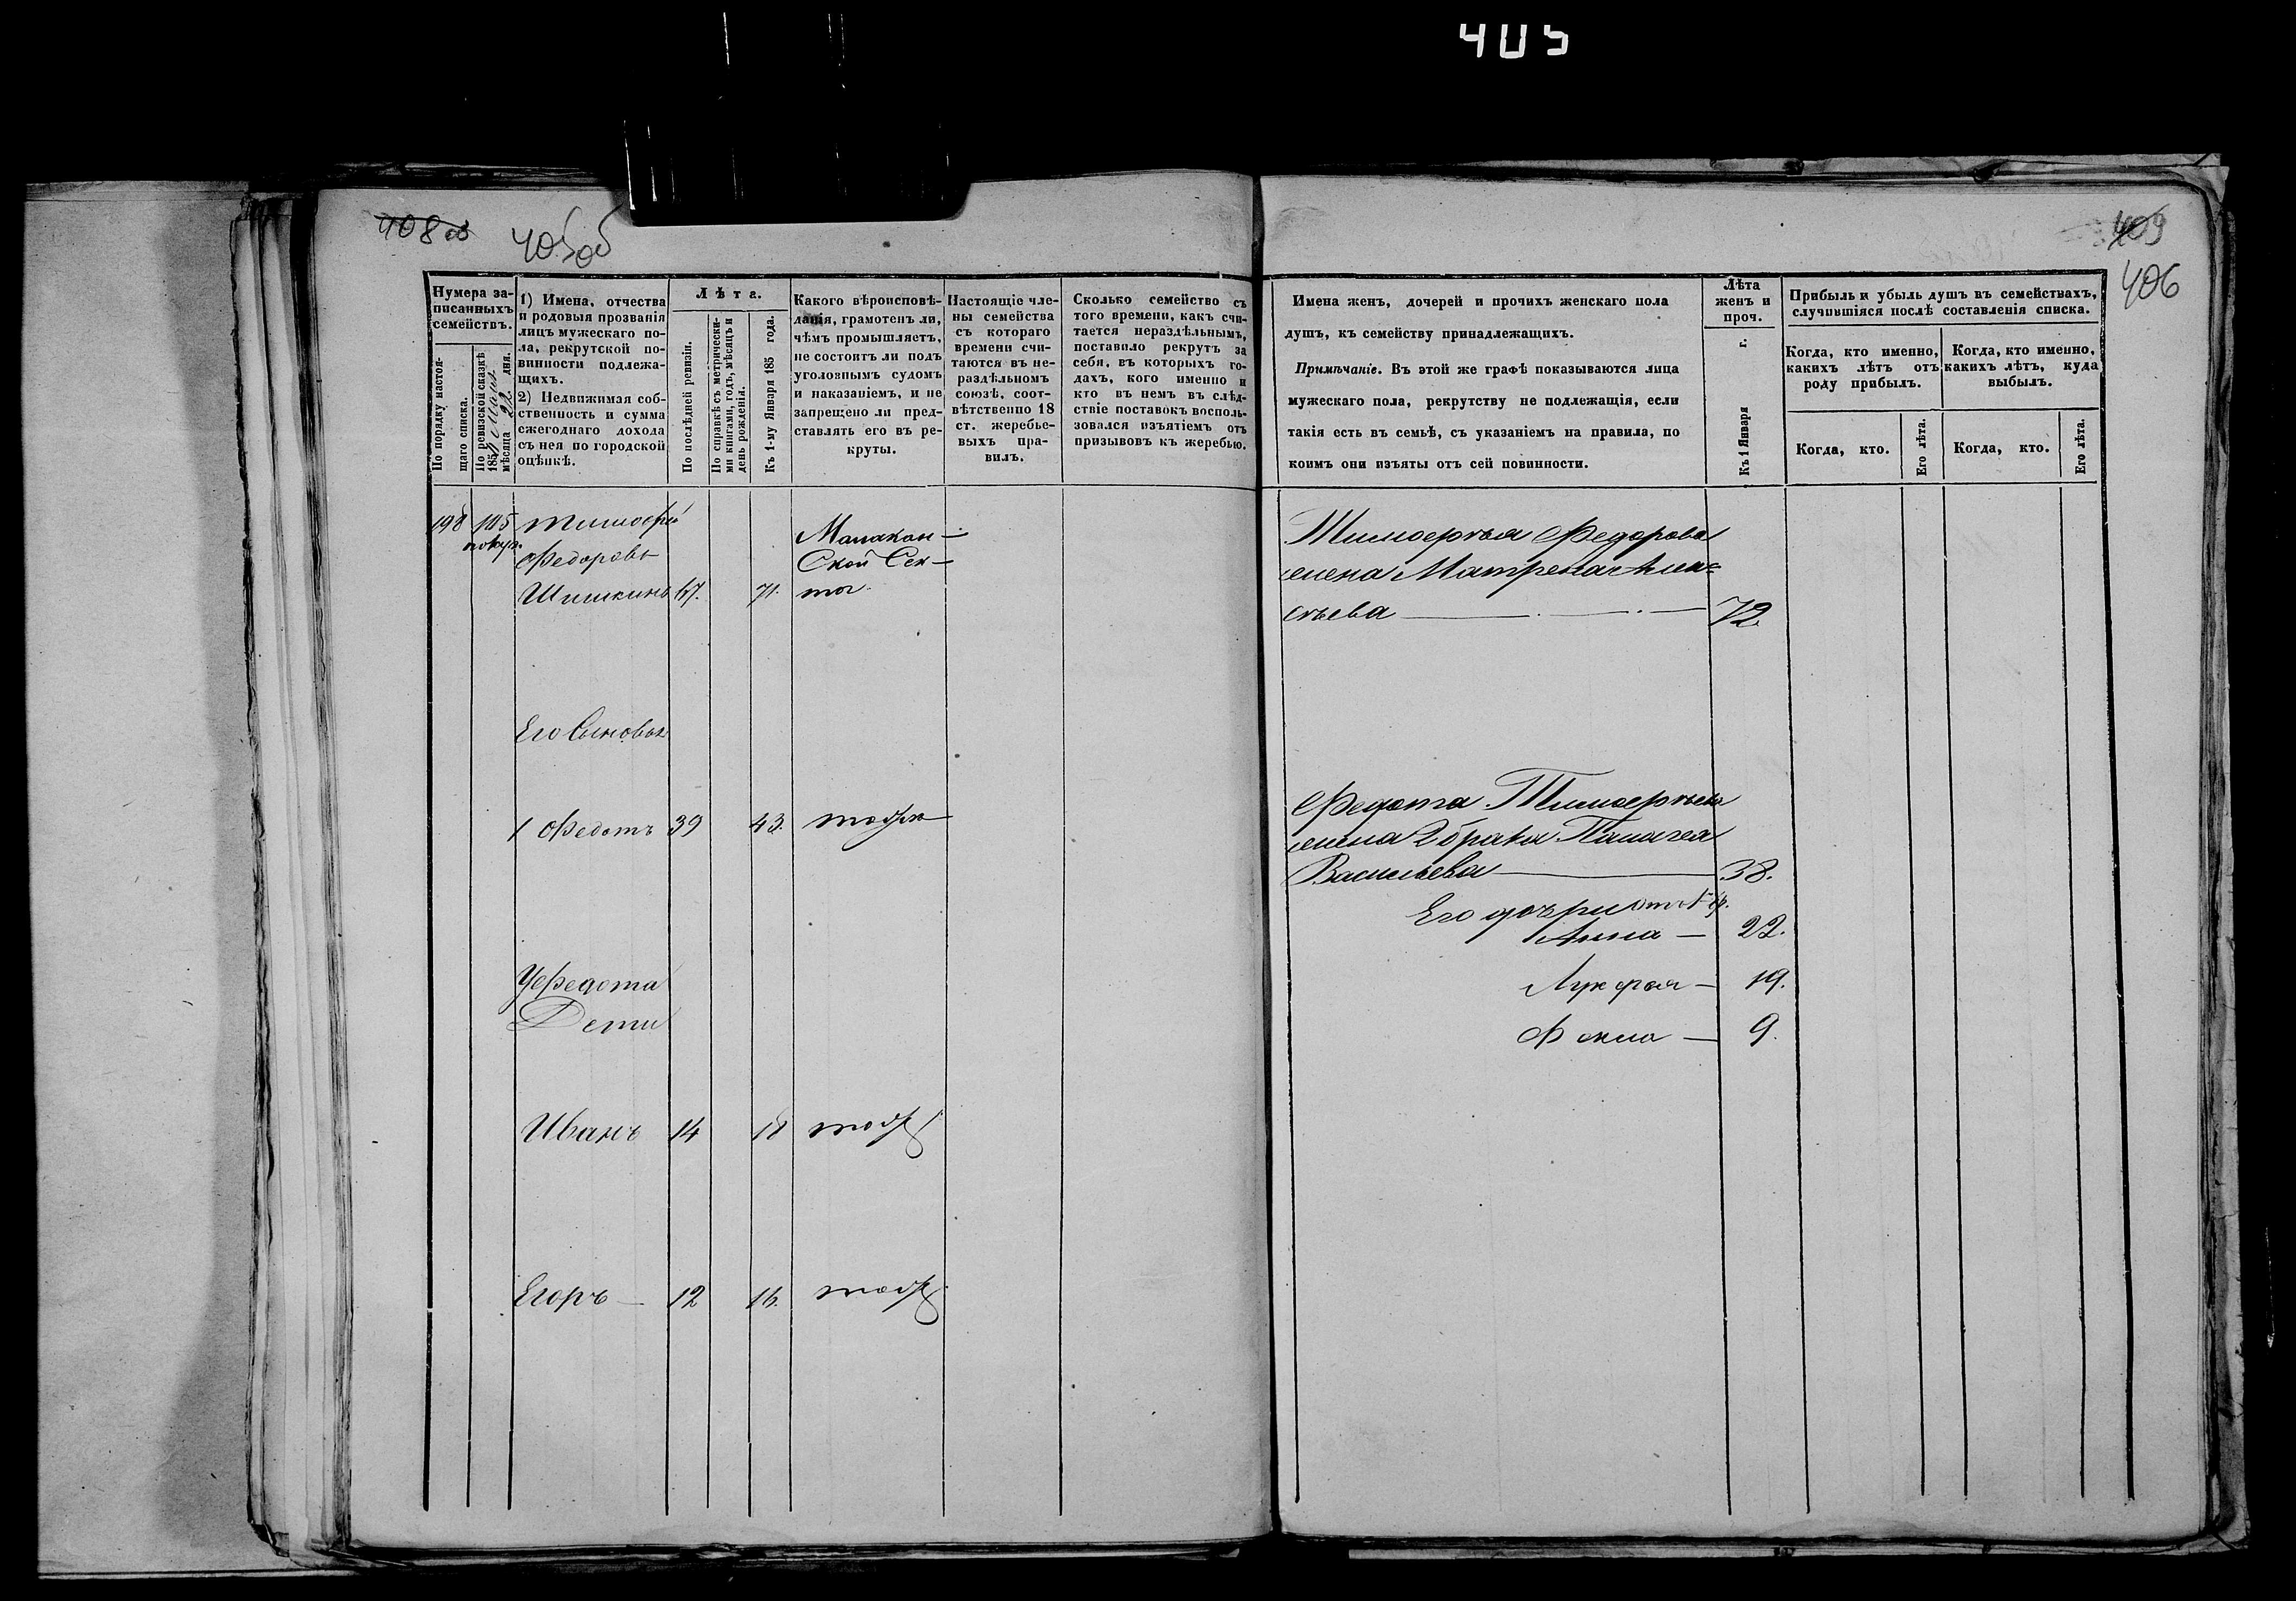 405
408 об
405об
Нумера за-
писанныхъ
семействъ.
По порядку настоя-
щаго списка.
По ревизской сказкѣ
185 Маия
мѣсяца 22 дня.
1) Имена, отчества
и родовыя прозванія
лицъ мужескаго по-
ла, рекрутской по-
винности подлежа-
щихъ.
2) Недвижимая соб-
ственность и сумма
ежегоднаго дохода
съ нея по городской
оцѣнкѣ.
Лѣта.
По послѣдней ревизіи.
По справкѣ съ метрически-
ми книгами, годъ, мѣсяцъ и
день рожденія.
Къ 1-му Января 185 года.
Какого вѣроисповѣ-
данія, грамотенъ ли,
чѣмъ промышляетъ,
не состоитъ ли подъ
уголовнымъ судомъ
и наказаніемъ, и не
запрещено ли пред-
ставлять его въ ре-
круты.
Настоящіе чле-
ны семейства
съ котораго
времени счи-
таются въ не-
раздѣльномъ
союзѣ, соот-
вѣтственно 18
ст. жеребье-
выхъ пра-
вилъ.
Сколько семейство съ
того времени, какъ счи-
тается нераздѣльнымъ,
поставило рекрутъ за
себя, въ которыхъ го-
дахъ, кого именно и
кто въ немъ въ слѣд-
ствіе поставокъ восполь-
зовался изъятіемъ отъ
призывовъ къ жеребью.
198 105 Тимофѣй
Федоровъ
Шишкинъ 67. 71.
Малакан-
Ской Сек-
ты.
Его Сыновья
1 Федотъ 39 43. тоже
У Федота
Дети
Иванъ 14 18 тоже
Егоръ — 12 16. тоже
409
406
Имена женъ, дочерей и прочихъ женскаго пола
душъ, къ семейству принадлежащихъ.
Примѣчаніе. Въ этой же графѣ показываются лица
мужескаго пола, рекрутству не подлежащія, если
такія есть въ семьѣ, съ указаніемъ на правила, по
коимъ они изъяты отъ сей повинности.
Лѣта
женъ и
проч.
Къ 1 Января г.
Прибыль и убыль душъ въ семействахъ,
случившіяся послѣ составленія списка.
Когда, кто именно,
какихъ лѣтъ отъ
роду прибылъ.
Когда, кто именно,
какихъ лѣтъ, куда
выбылъ.
Когда, кто.
Его лѣта.
Когда, кто.
Его лѣта.
Тимофѣя Федорова
жена Матрена Алек=
сѣева — 72
Федота Тимофѣева
жена 2 брака Палагея
Васильева — 38.
Его дочри от 1 бр.
Анна — 22.
Лукерья — 19.
Фекла — 9.